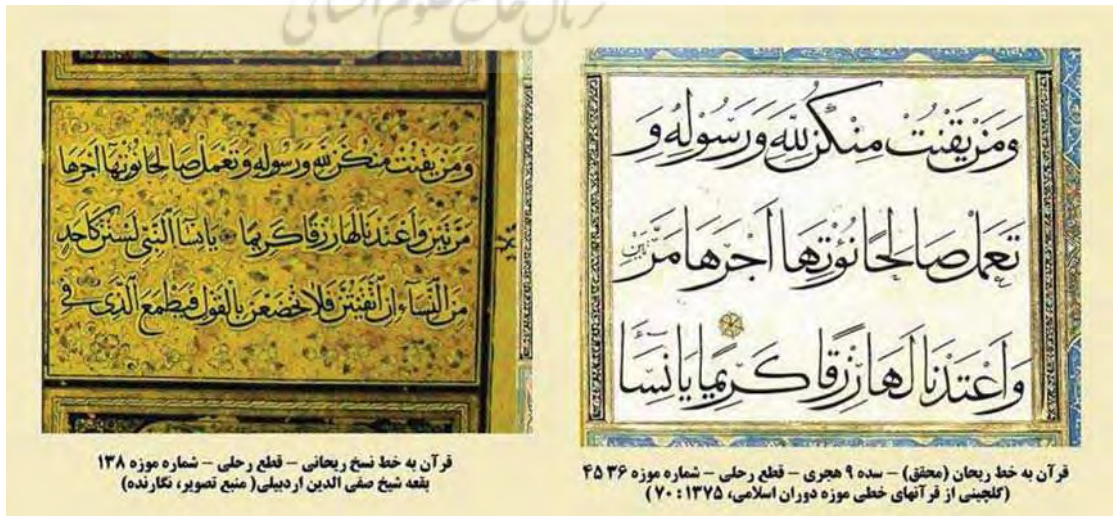 جامع علوم انسانی
وَمَنْ يَقْنُتْ مِنْكُنَّ لِلَّهِ وَرَسُولِهِ وَ
تَعْمَلْ صَالِحًا نُؤْتِهَا أَجْرَهَا مَرَّتَيْنِ
وَأَعْتَدْنَا لَهَا رِزْقًا كَرِيمًا يَا نِسَآ
قرآن به خط ریحان (محقق) – سده ۹ هجری – قطع رحلی – شماره موزه ۳۶ ۴۵
(گلچینی از قرآنهای خطی موزه دوران اسلامی، ۱۳۷۵ : ۷۰)
وَمَنْ يَقْنُتْ مِنْكُنَّ لِلَّهِ وَرَسُولِهِ وَتَعْمَلْ صَالِحًا نُؤْتِهَا أَجْرَهَا
مَرَّتَيْنِ وَأَعْتَدْنَا لَهَا رِزْقًا كَرِيمًا يَا نِسَآءَ النَّبِيِّ لَسْتُنَّ كَأَحَدٍ
مِنَ النِّسَآءِ إِنِ اتَّقَيْتُنَّ فَلَا تَخْضَعْنَ بِالْقَوْلِ فَيَطْمَعَ الَّذِي فِي
قرآن به خط نسخ ریحانی – قطع رحلی – شماره موزه ۱۳۸
بقعه شیخ صفی الدین اردبیلی( منبع تصویر، نگارنده)